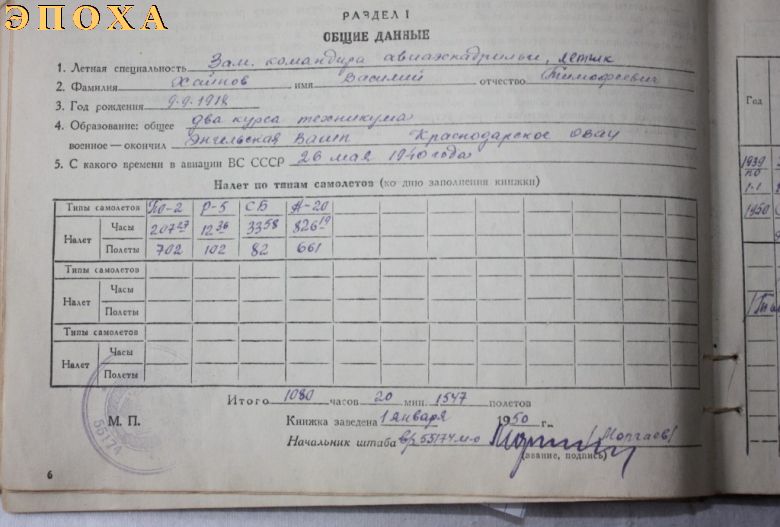 ЭПОХА
РАЗДЕЛ I
ОБЩИЕ ДАННЫЕ
1. Летная специальность Зам. командира авиаэскадрильи, летчик
2. Фамилия Хаинов имя Василий отчество Тимофеевич
3. Год рождения 9.9.1918
4. Образование: общее два курса техникума
военное — окончил Энгельская Вашп Краснодарское овау
5. С какого времени в авиации ВС СССР 26 мая 1940 года
Налет по типам самолетов (ко дню заполнения книжки)
Типы самолетов По-2 Р-5 СБ А-20
Налет Часы 207 27 12 36 33 58 826 19
Полеты 702 102 82 661
Типы самолетов
Налет Часы
Полеты
Типы самолетов
Налет Часы
Полеты
Итого 1080 часов 20 мин. 1547 полетов
М. П. Книжка заведена 1 января 1950 г.
Начальник штаба в/ч 55174 м-р
(звание, подпись)
55174
6
Год
1939
по
1950